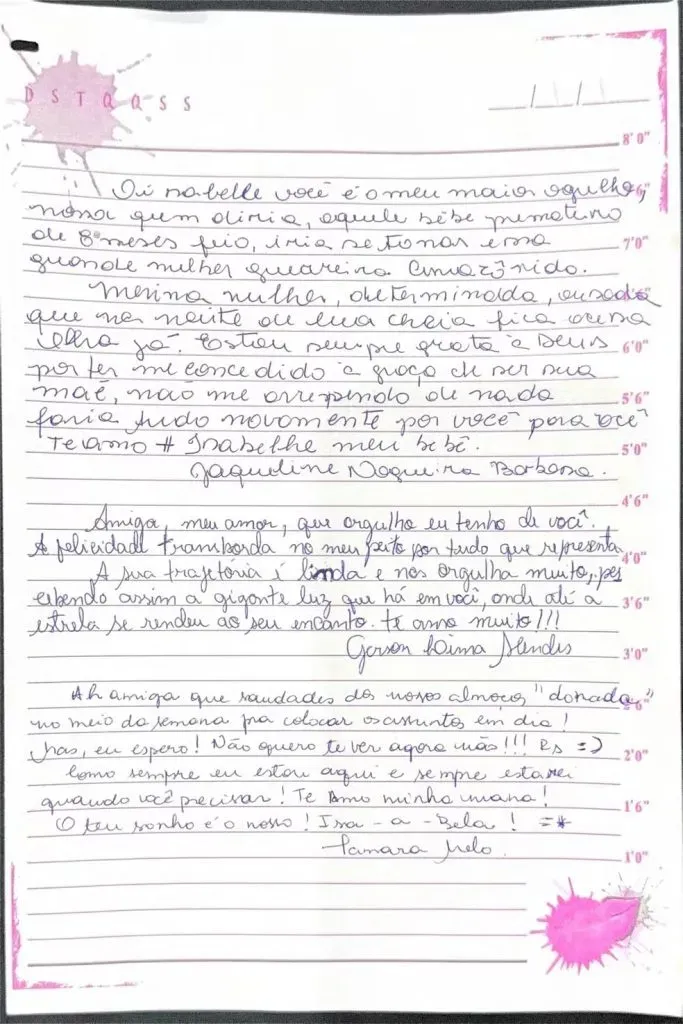 D S T Q Q S S
__/__/__
8'0"
Oi nabelle você é o meu maior ogulho, 6"
nossa quem diria, aquele bêbe prematuro
de 8 meses feio, iria se tonar essa 7'0"
guande mulher guareira Amazônida.
Menina mulher, determinada, ousada
que na noite de lua cheia fica nessa
ilha já. Estou sempre grata à Deus 6'0"
por ter me concedido a graça de ser sua
maẽ, não me arrependo de nada 5'6"
faria tudo novamente por você para você
Te amo # Isabelhe meu bebê. 5'0"
Jaqueline Nogueira Barbosa.
4'6"
Amiga, meu amor, que orgulho eu tenho de você.
A felicidade transborda no meu peito por tudo que representa 4'0"
A sua trajetória é linda e nos orgulha muito, per
cebendo assim a gigante luz que há em você, onde até a 3'6"
estrela se rendeu ao seu encanto. Te amo muito!!!
Gerson Lima Mendes 3'0"
Ah amiga que saudades dos nossos almoços "donada" 2'6"
no meio da semana pra colocar os assuntos em dia!
Mas, eu espero! Não quero te ver agora não!!! Rs =) 2'0"
Como sempre eu estou aqui e sempre estarei
quando você precisar! Te Amo minha mana! 1'6"
O teu sonho é o nosso! Isa - a - Bela! =*
Tamara Melo. 1'0"